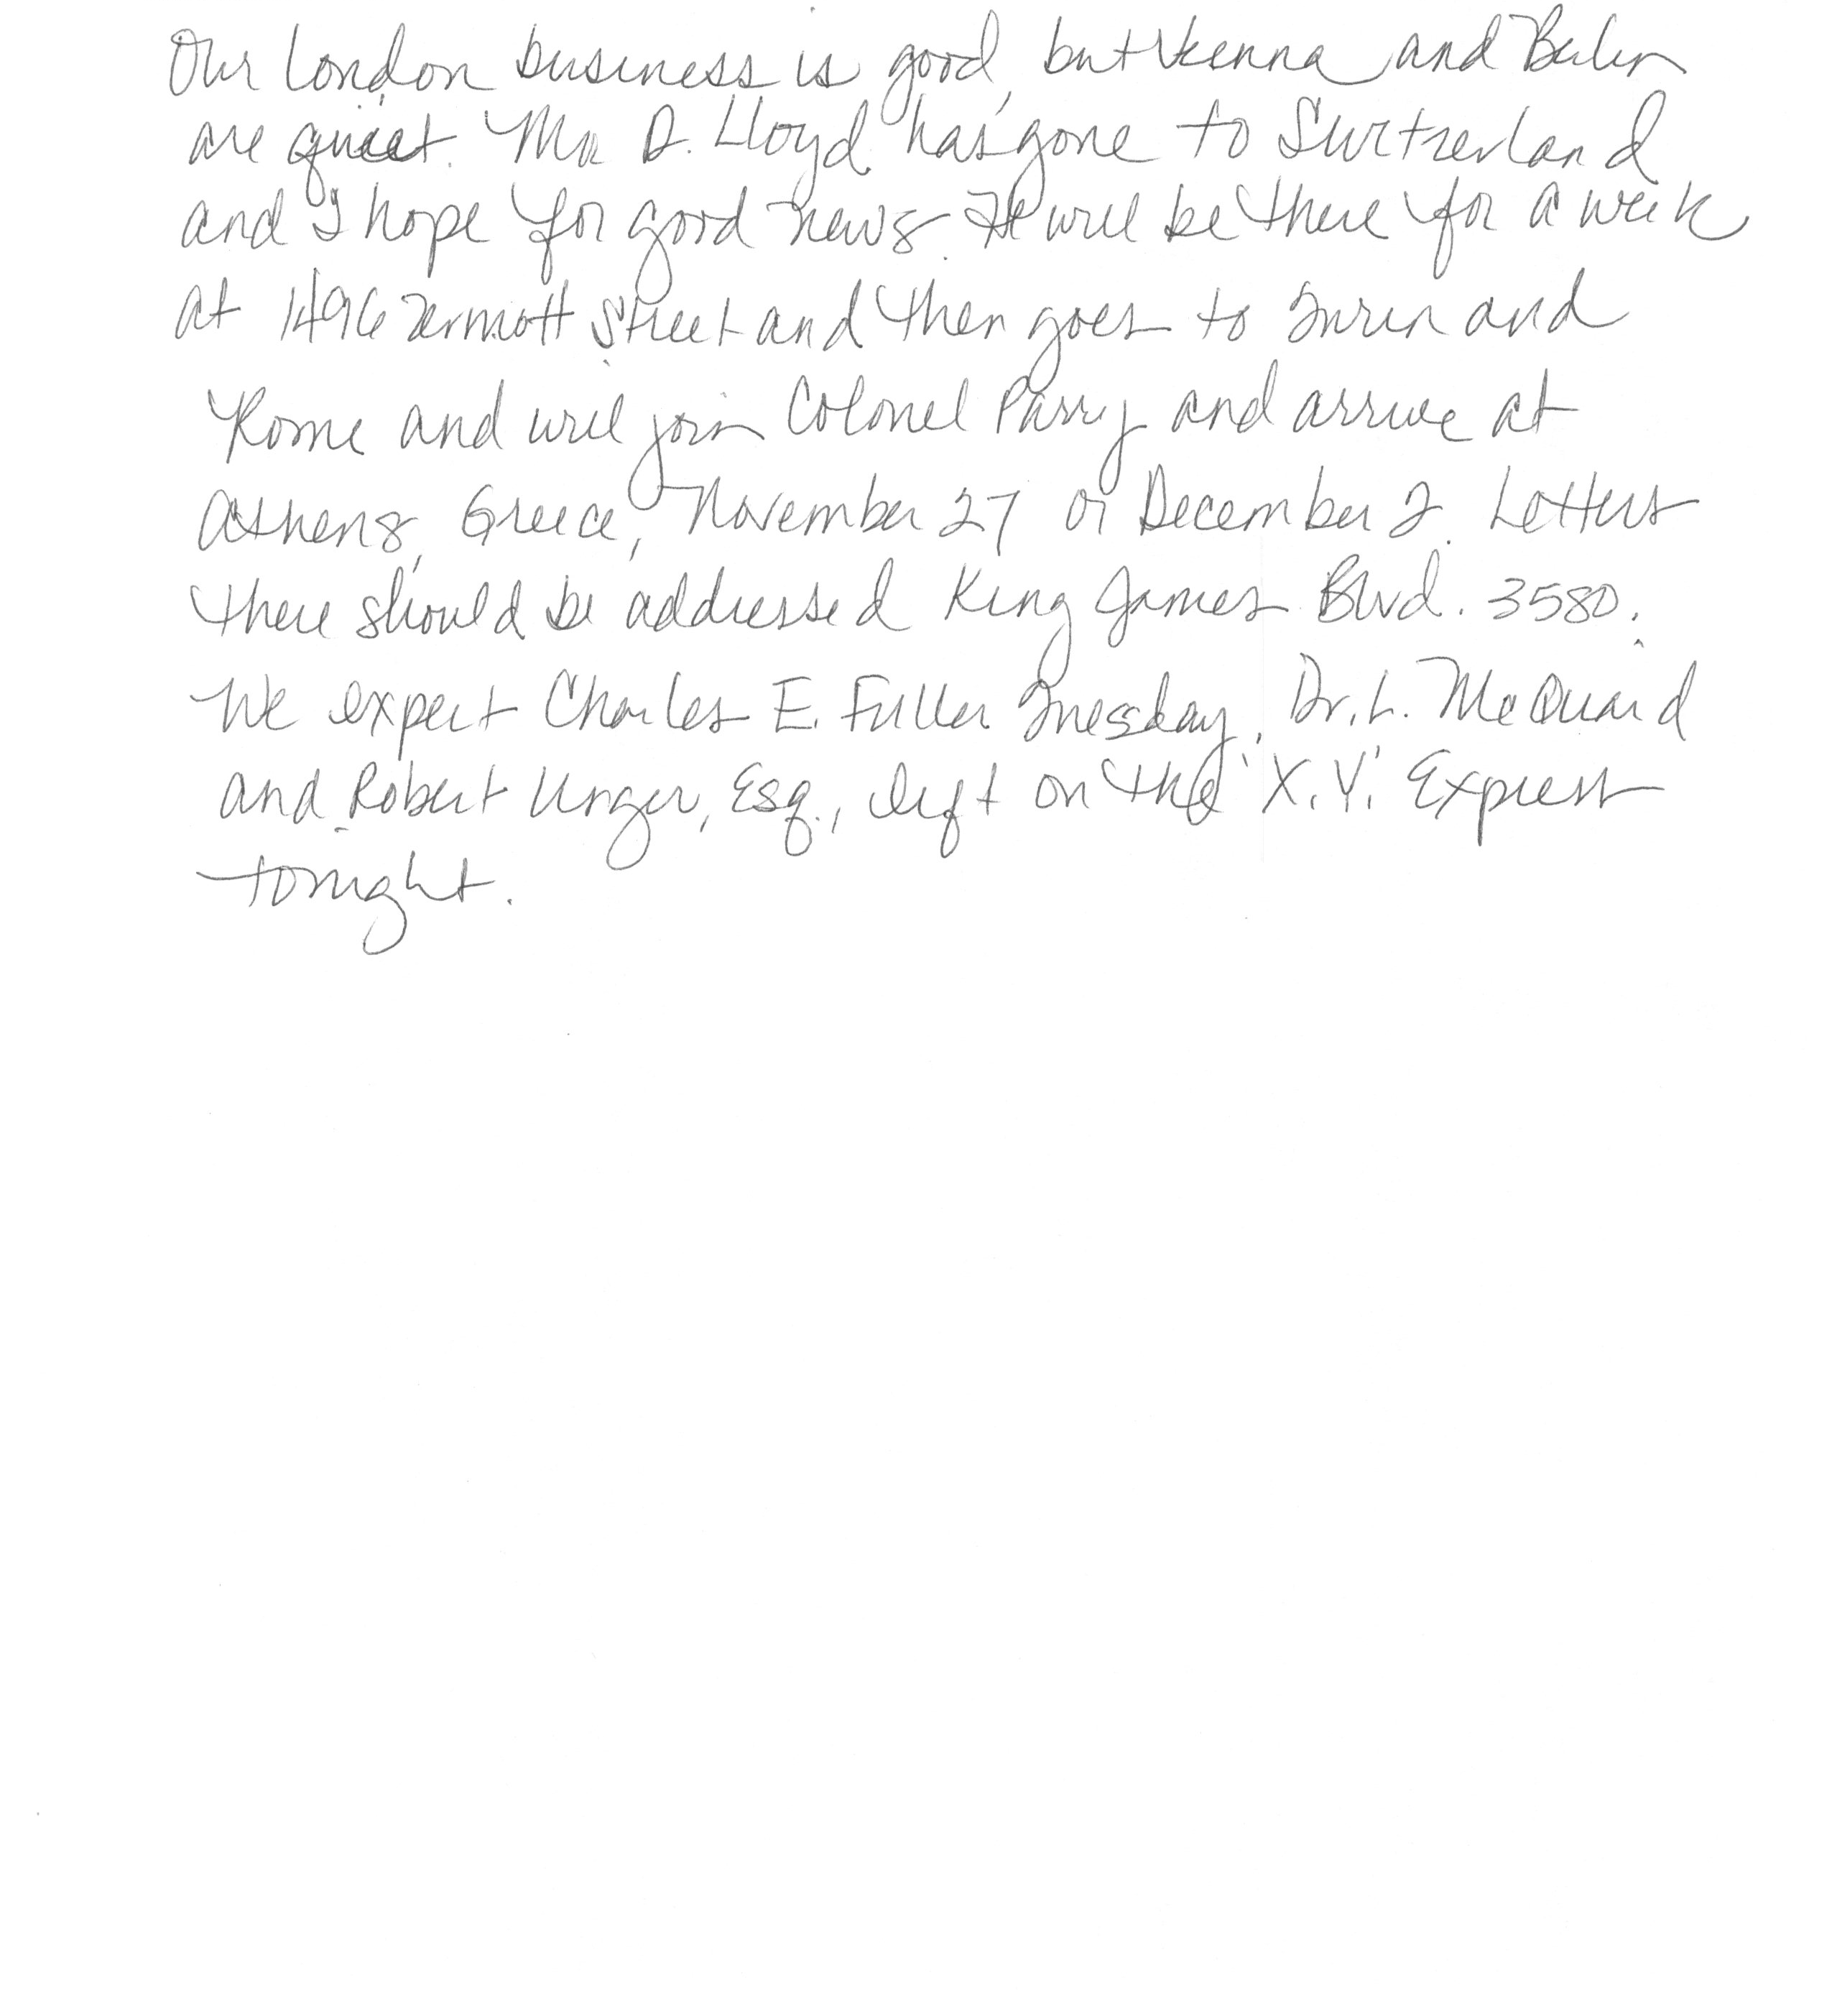 Our London business is good, but Vienna and Berlin
are quiet. Mr. D. Lloyd has gone to Switzerland
and I hope for good news. He will be there for a week
at 1496 Zermott Street and then goes to Turin and
Rome and will join Colonel Parry and arrive at
Athens, Greece, November 27 or December 2. Letters
there should be addressed King James Blvd. 3580.
We expect Charles E. Fuller Tuesday. Dr. L. McQuaid
and Robert Unger, Esq., left on the 'X.Y.' Express
tonight.